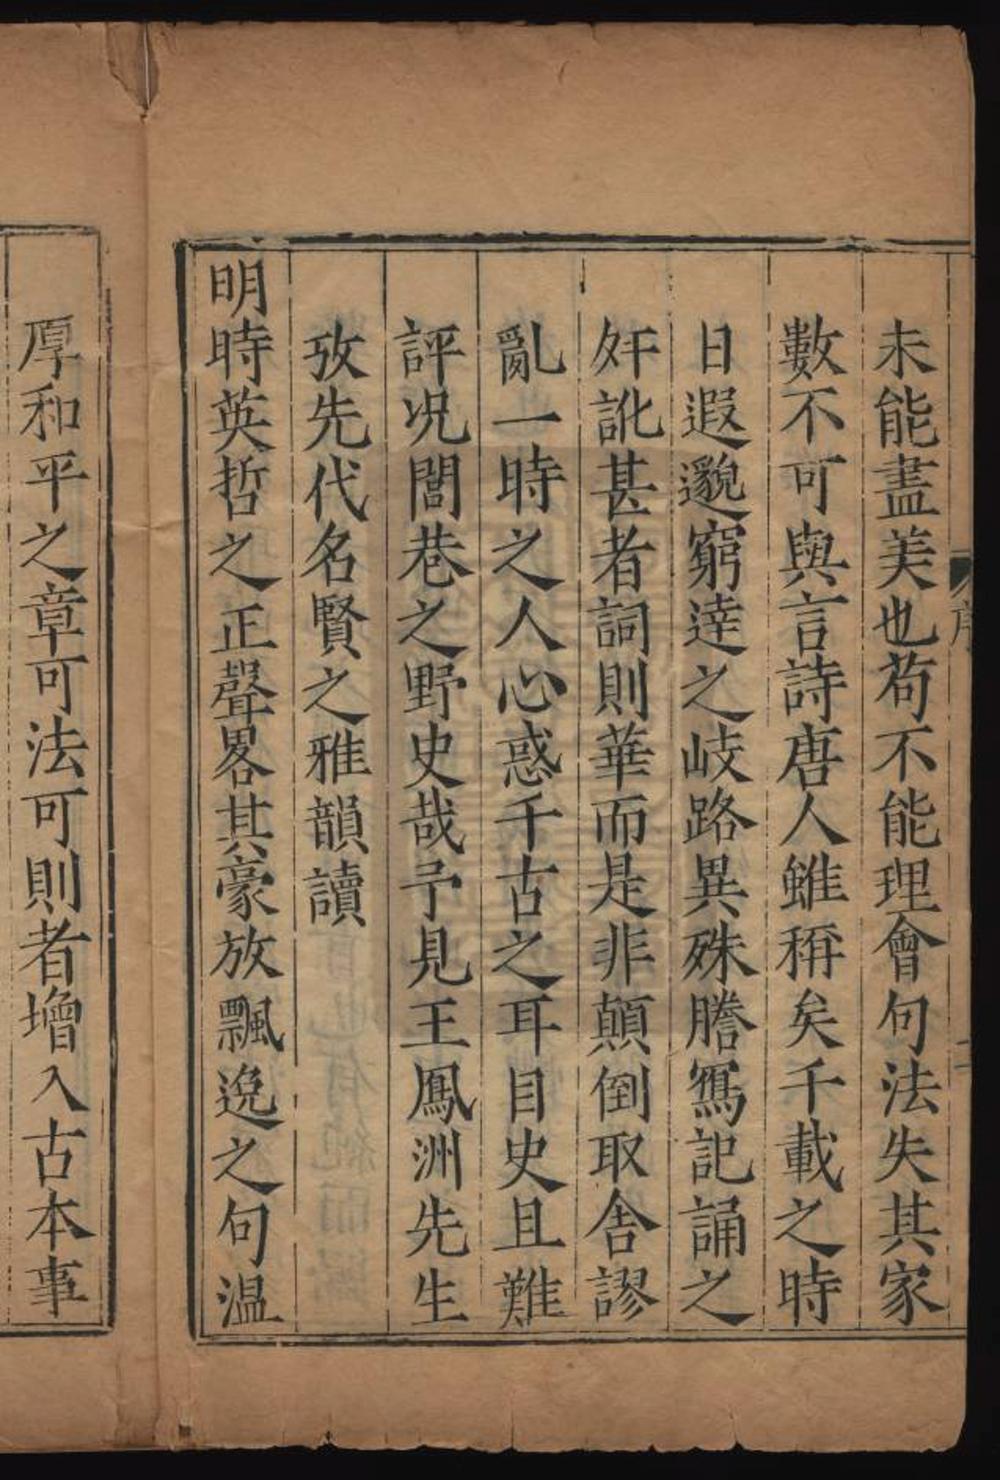 序
二
未能盡美也苟不能理會句法失其家
數不可與言詩唐人雖稱矣千載之時
日遐邈窮達之岐路異殊謄寫記誦之
奸訛甚者詞則華而是非顛倒取舍謬
亂一時之人心惑千古之耳目史且難
評况閭巷之野史哉予見王鳳洲先生
攷先代名賢之雅韻讀
明時英哲之正聲畧其豪放飄逸之句温
厚和平之章可法可則者增入古本事